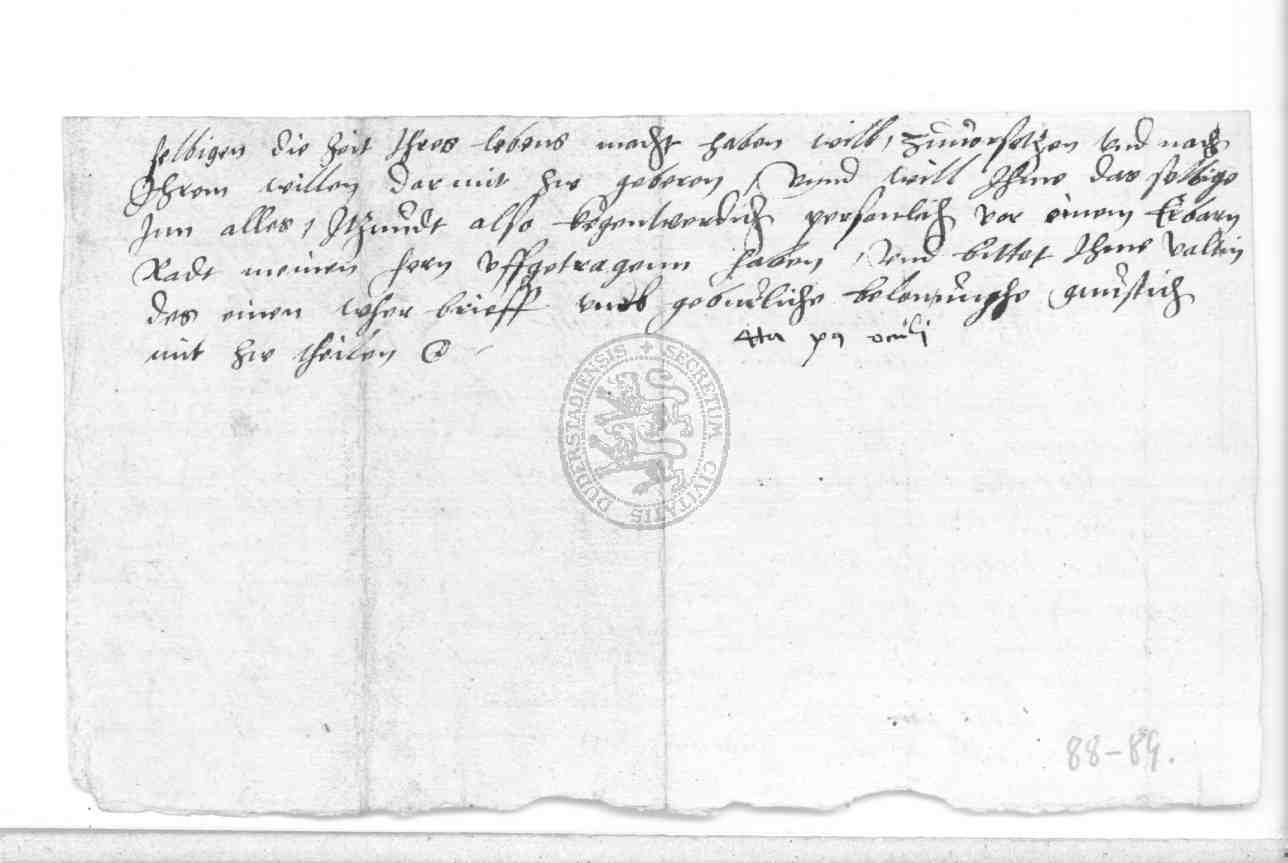 selbigen die Zeit Ihres lebens macht haben will, zuuorsetzen vnd nach
Ihrem willen darmit zw geberen, Vnnd will Ihme das selbige
Inn alles, Itzundt also kegenwerdich personlich vor einem Erbarn
Radt meinen hern vffgetragenn haben, Vnd bittet Ihme Valtin
des einen wher brieff geburliche gunstich
mit zw theilen
oculi
SECRETUM CIVITATIS DUDERSTADIENSIS
88-89.